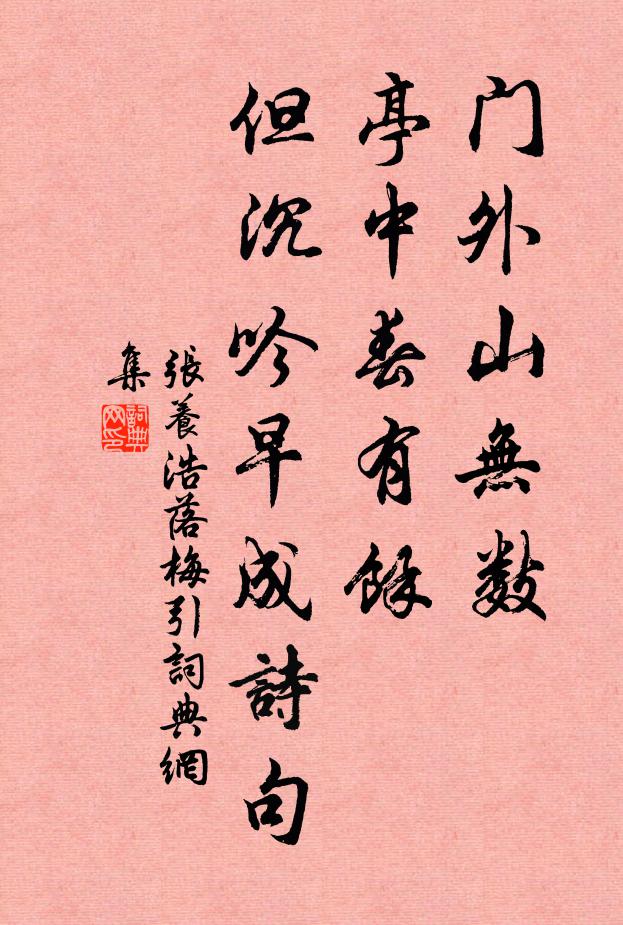 门外山無数
亭中春有餘
但沉吟早成詩句
張養浩落梅引詞典網
集
詞典网印